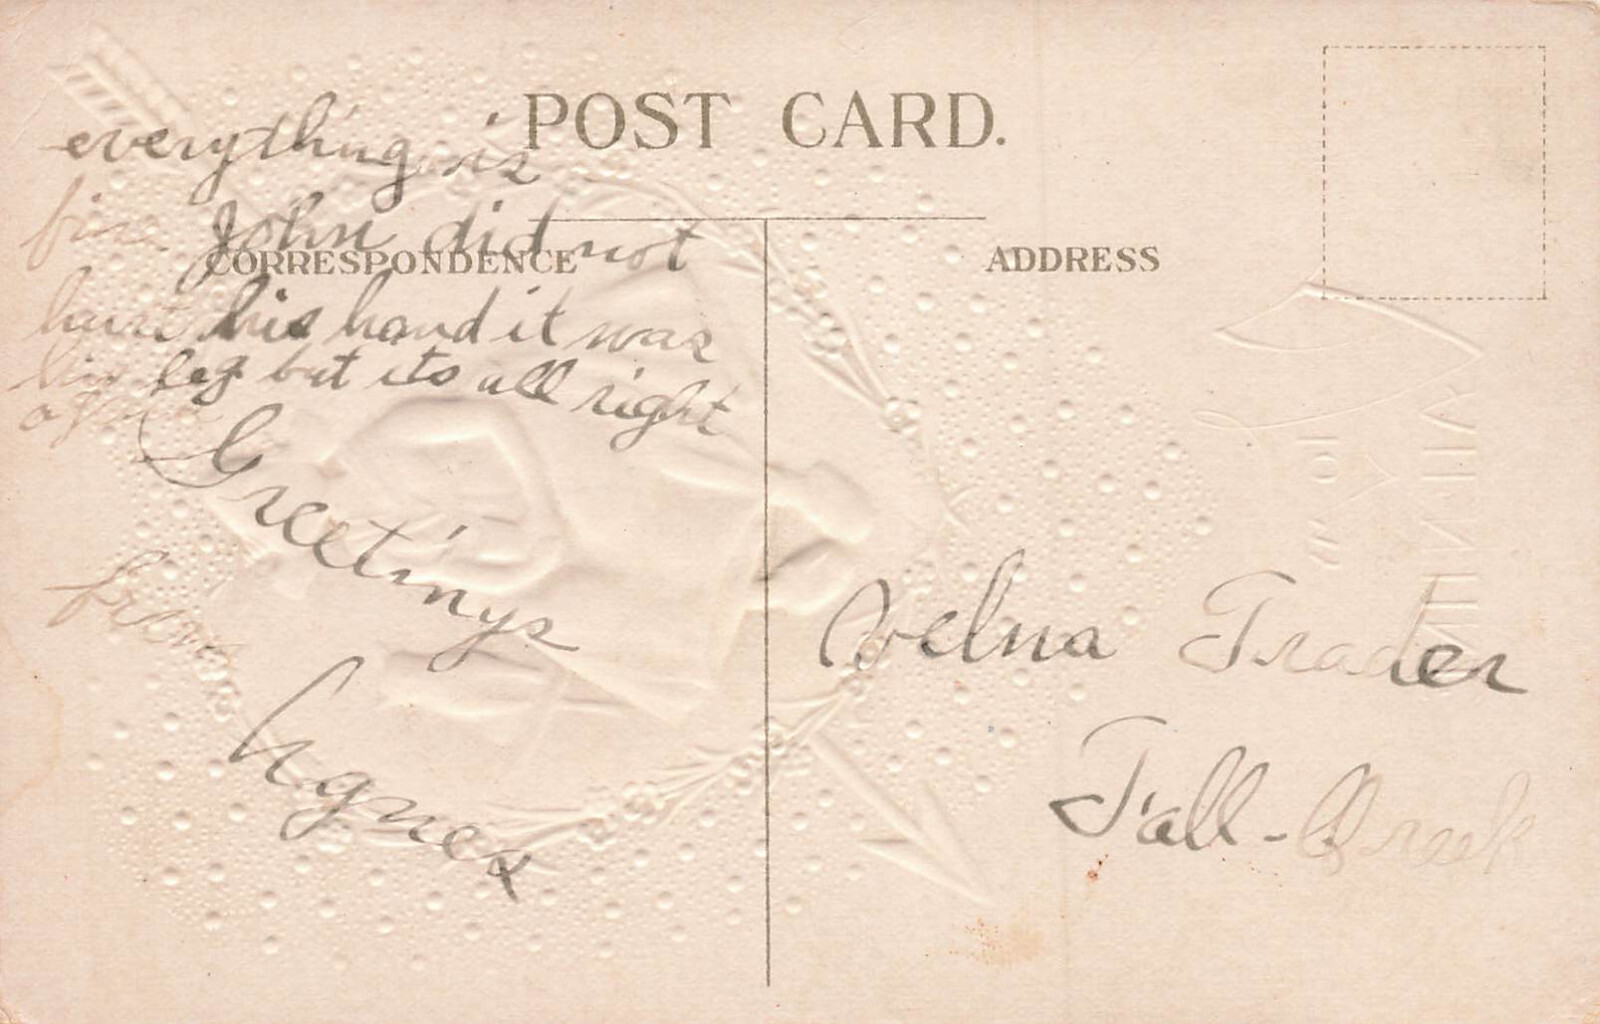 POST CARD.
everything is
fine John did not
CORRESPONDENCE
ADDRESS
hurt his hand it was
his leg but its all right
Greetings
from
Agnes
Velma Trader
Fall-Creek